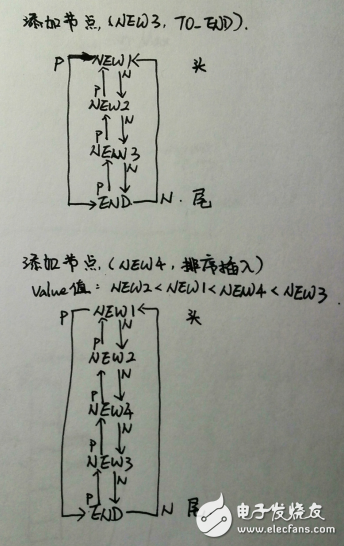 添加节点,(NEW3, TO_END).
P NEW1 头
P N
NEW2
P N
NEW3
P N
END N. 尾
添加节点,(NEW4, 排序插入)
Value值: NEW2<NEW1<NEW4<NEW3
P NEW1 头
P N
NEW2
P N
NEW4
P N
NEW3
P N
END N 尾
电子发烧友
www.elecfans.com